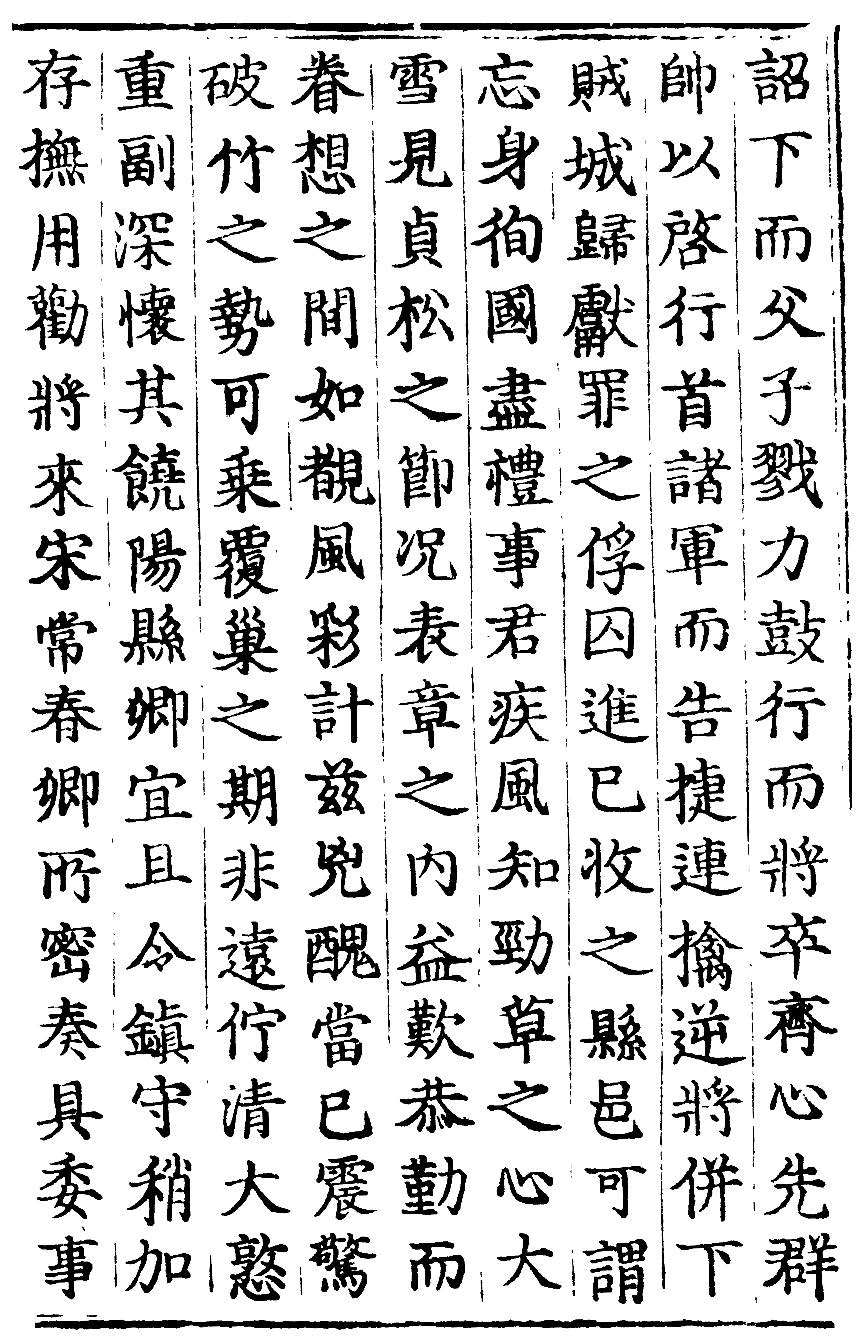 詔下而父子戮力鼓行而將卒齊心先群
帥以啓行首諸軍而告捷連擒逆將併下
賊城歸獻罪之俘囚進已收之縣邑可謂
忘身徇國盡禮事君疾風知勁草之心大
雪見貞松之節况表章之內益歎恭勤而
眷想之間如覩風彩計兹兇醜當已震驚
破竹之勢可乗覆巢之期非遠佇清大憝
重副深懷其饒陽縣卿宜且令鎮守稍加
存撫用勸將來宋常春卿所密奏具委事